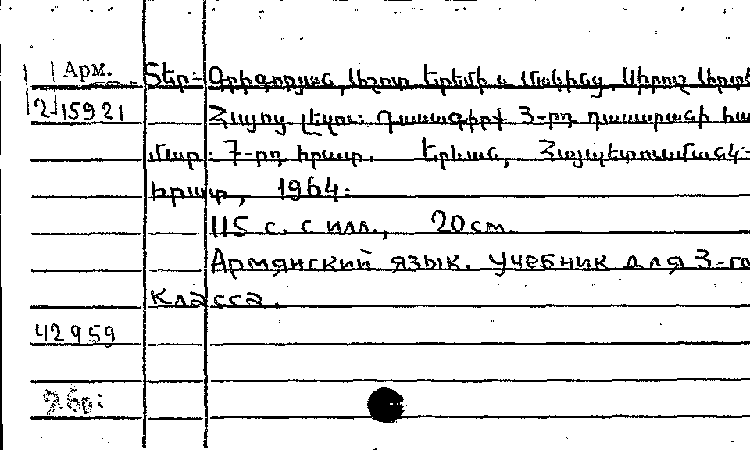 Арм. Տեր-Գրիգորյան, Աշոտ Երեմի և Մակինց, Սիրուշ
2-15921 Հայոց լեզու: Դասագիրք 3-րդ դասարանի հա
մար: 7-րդ հրատ. Երևան, Հայպետուսմանկ-
հրատ, 1964:
115 с. с илл., 20 см.
Армянский язык. Учебник для 3-го
класса.
42959